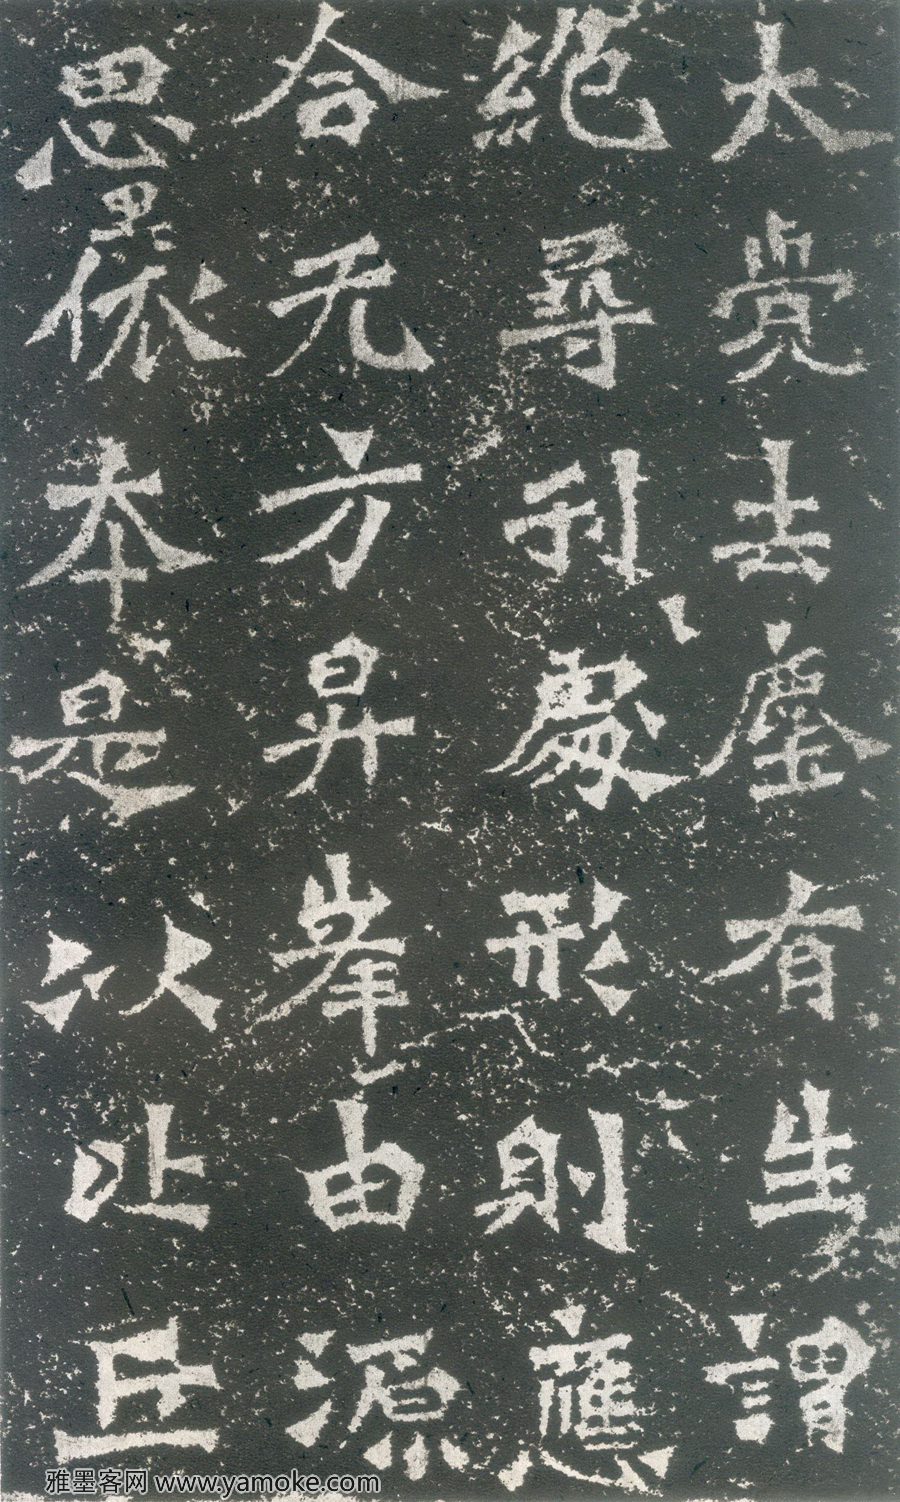 大覺去塵有生謂
絶尋刊處形則應
合无方昇峯由源
思累依本是以比丘
雅墨客网 www.yamoke.com